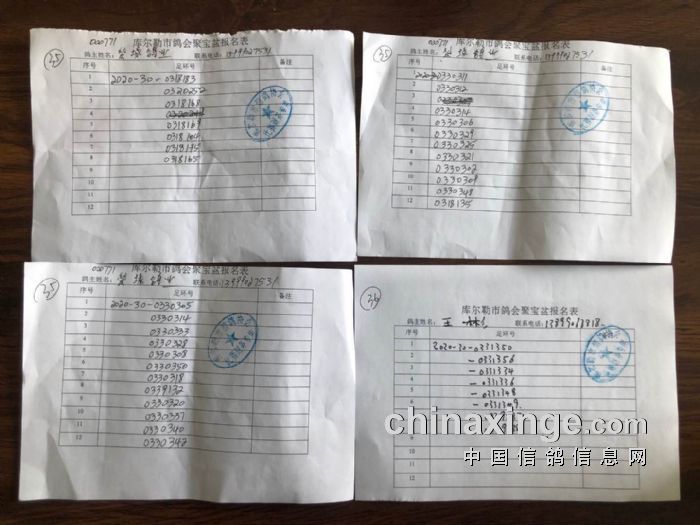 35
020771 库尔勒市鸽会聚宝盆报名表
鸽主姓名: 联系电话:
序号 足环号 备注
1 2020-30-0318183
2 0320252
3 0318168
4
5 0318169
6 0318104
7 0318175
8 0318165
9
10
11
12
35
020771 库尔勒市鸽会聚宝盆报名表
鸽主姓名: 联系电话:
序号 足环号 备注
1 0330311
2 0330312
3
4 0330314
5 0330306
6 0330329
7 0330325
8 0330321
9 0330302
10 0330309
11 0330348
12 0318135
35
020771 库尔勒市鸽会聚宝盆报名表
鸽主姓名: 联系电话:
序号 足环号 备注
1 2020-30-0330305
2 0330314
3 0330333
4 0330328
5 0330308
6 0330350
7 0330318
8 0339132
9 0330320
10 0330337
11 0330340
12 0330342
36
库尔勒市鸽会聚宝盆报名表
鸽主姓名: 王 联系电话:
序号 足环号
1 2020-30-0331350
2 -0331356
3 -0331334
4 -0331336
5 -0331348
6
9
10
11
12
chinaxinge.com
中国信鸽信息网